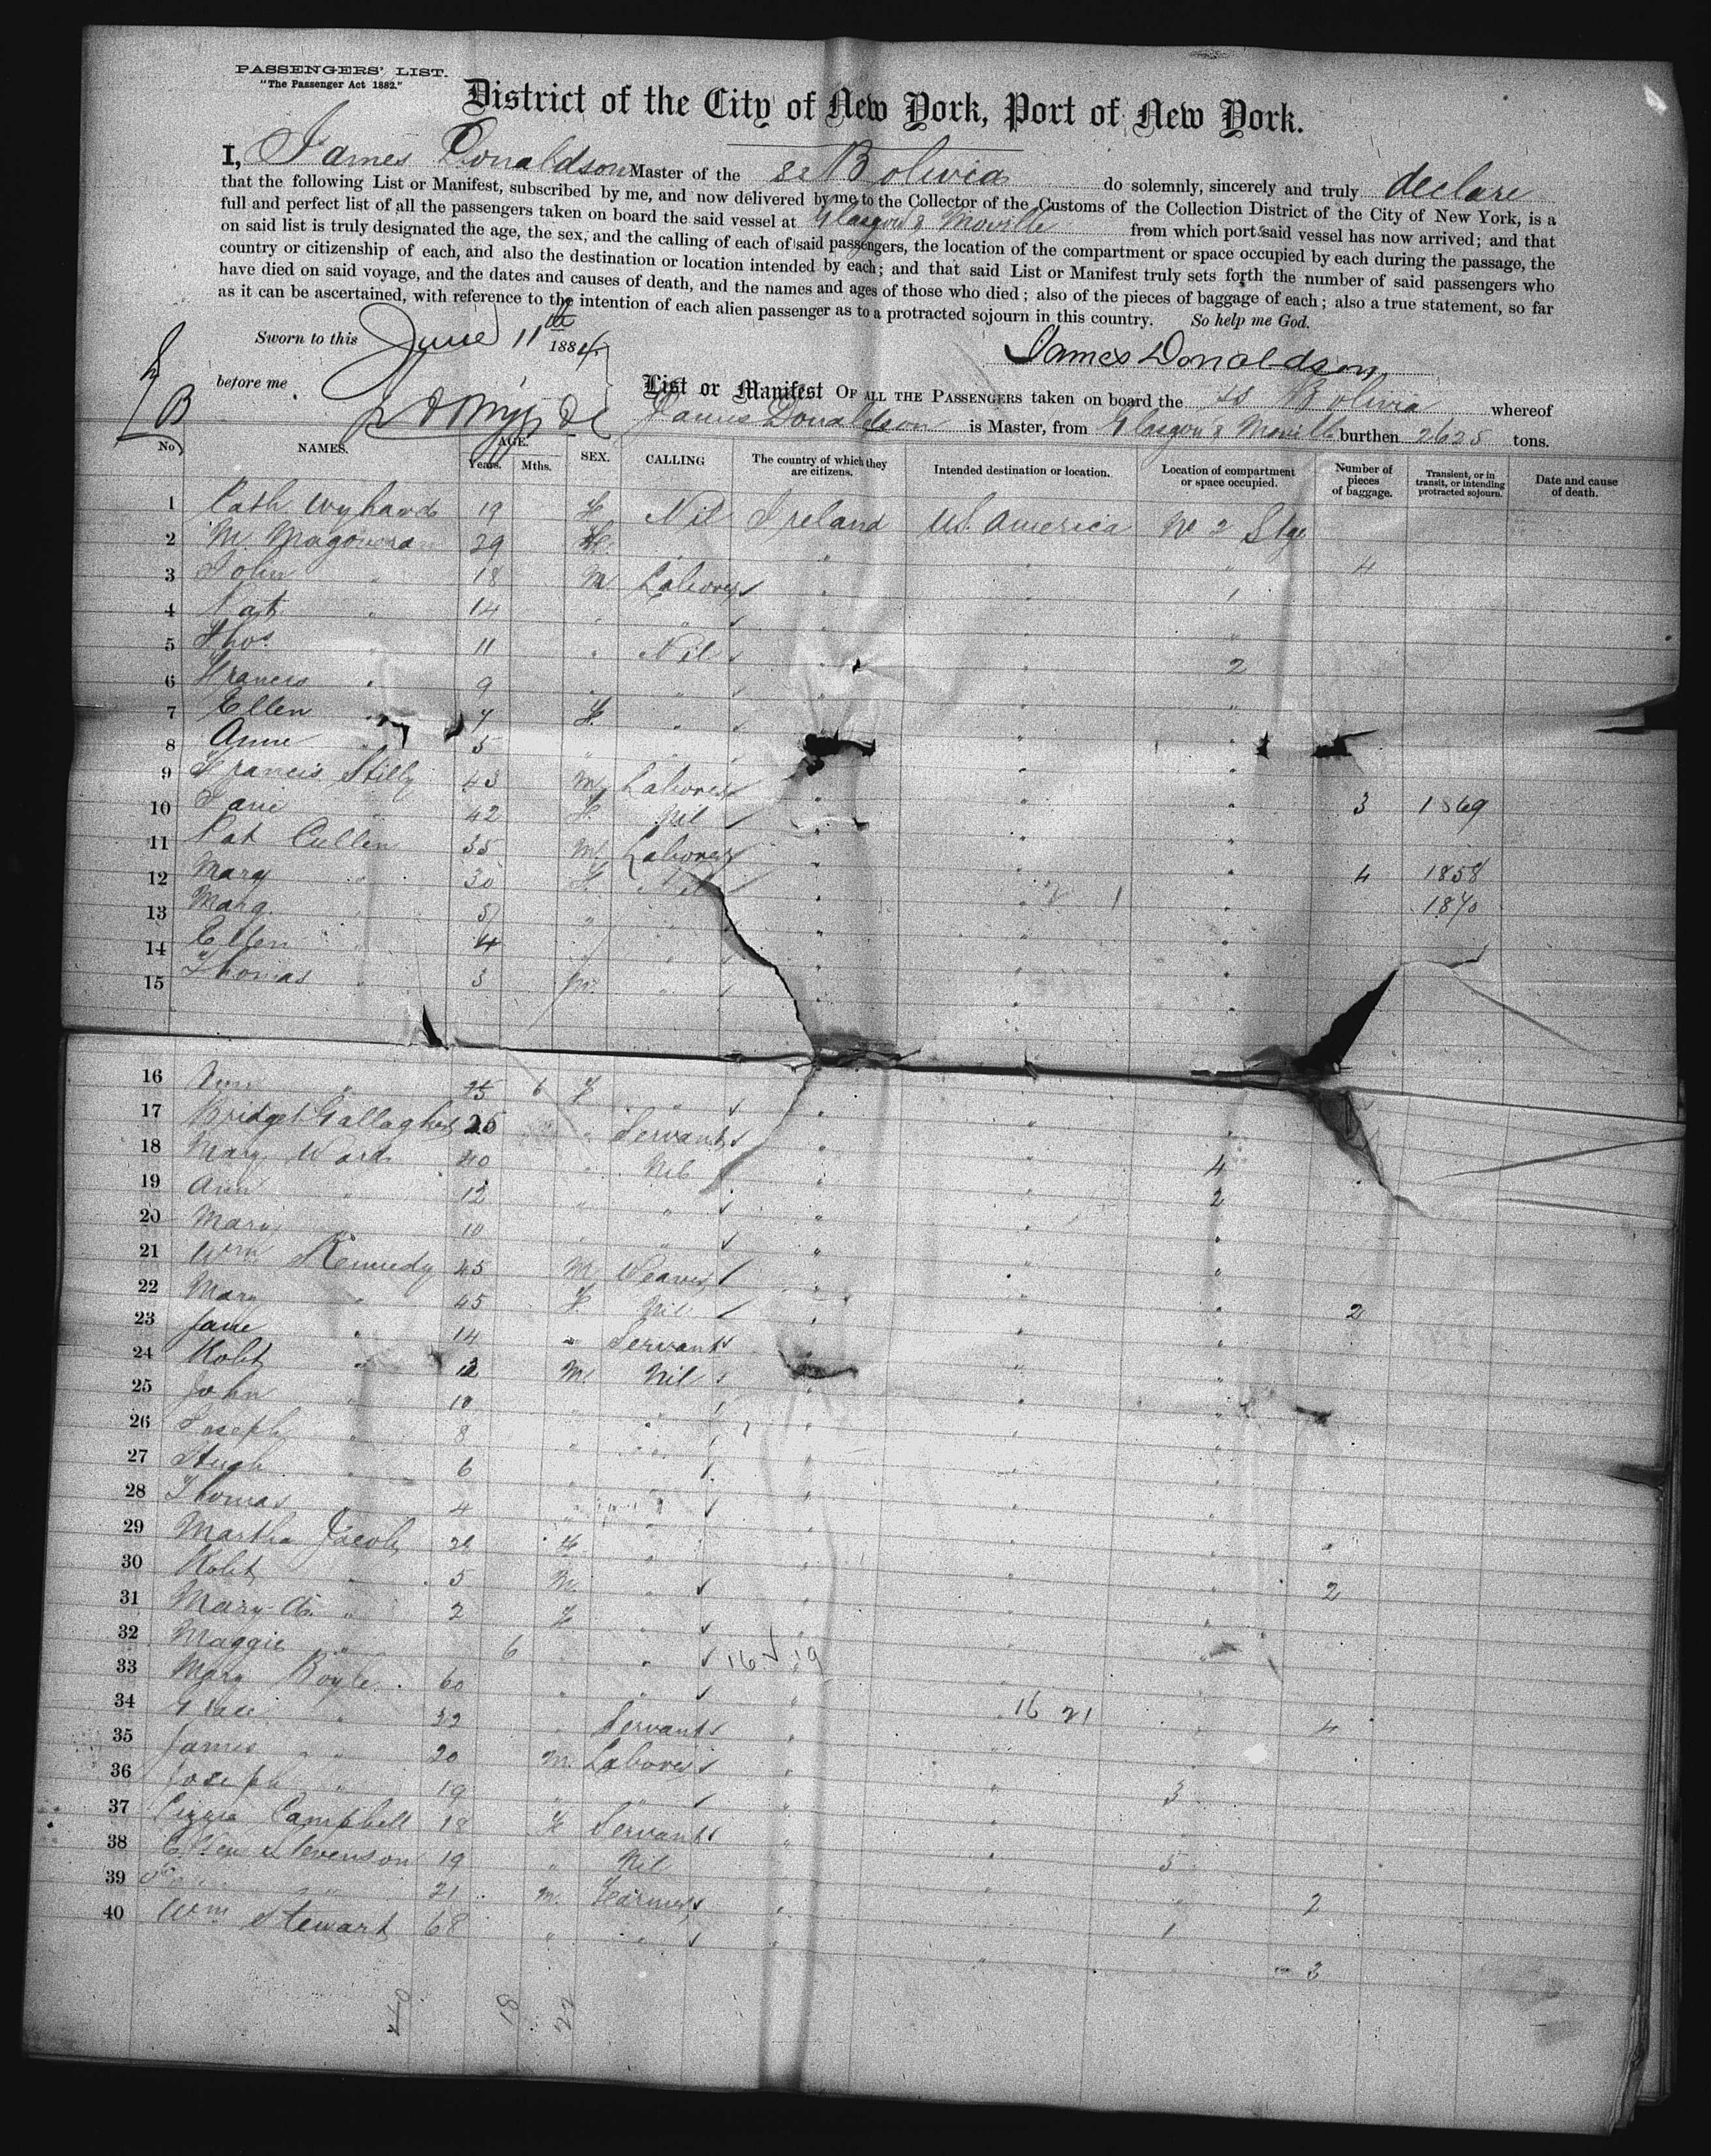 PASSENGERS' LIST.
"The Passenger Act 1882."
District of the City of New York, Port of New York.
I, James Donaldson Master of the SS Bolivia do solemnly, sincerely and truly declare
that the following List or Manifest, subscribed by me, and now delivered by me to the Collector of the Customs of the Collection District of the City of New York, is a
full and perfect list of all the passengers taken on board the said vessel at Glasgow & Moville from which port said vessel has now arrived; and that
on said list is truly designated the age, the sex, and the calling of each of said passengers, the location of the compartment or space occupied by each during the passage, the
country or citizenship of each, and also the destination or location intended by each; and that said List or Manifest truly sets forth the number of said passengers who
have died on said voyage, and the dates and causes of death, and the names and ages of those who died; also of the pieces of baggage of each; also a true statement, so far
as it can be ascertained, with reference to the intention of each alien passenger as to a protracted sojourn in this country. So help me God.
Sworn to this June 11th 1884
James Donaldson
before me
List or Manifest OF ALL THE PASSENGERS taken on board the SS Bolivia whereof
James Donaldson is Master, from Glasgow & Moville burthen 2625 tons.
No NAMES. AGE. Years. Mths. SEX. CALLING The country of which they are citizens. Intended destination or location. Location of compartment or space occupied. Number of pieces of baggage. Transient, or in transit, or intending protracted sojourn. Date and cause of death.
1 Cath 19 F Nil Ireland U.S. America No 2 Stge
2 M. Magowran 39 F " " " 4
3 John " 18 M Laborer " " 1
4 Pat " 14 " " " " "
5 Thos. " 11 " Nil " " 2
6 Francis " 9 " " " " "
7 Ellen " 7 F " " " "
8 Anne " 5 " " " " "
9 Francis Stilly 43 M Laborer " " " 3 1869
10 Jane " 42 F Nil " " "
11 Pat Cullen 35 M Laborer " " " 4 1858
12 Mary " 30 F Nil " " " 1870
13 Marg. " 5 " " " " "
14 Ellen " 4 " " " " "
15 Thomas " 3 M " " "
16 Ann " 6 F " "
17 Bridget Gallagher 26 " Servant " " 4
18 Mary Ward 40 " Nil " " 2
19 Ann " 12 " " " " "
20 Mary " 10 " " " " "
21 Wm Kennedy 45 M Weaver " " " 2
22 Mary " 45 F Nil " " "
23 Jane " 14 " Servant " "
24 Robt " 12 M Nil " " "
25 John " 10 " " " " "
26 Joseph " 8 " " " " "
27 Hugh " 6 " " " "
28 Thomas " 4 " " " "
29 Martha Jacob F " " " 2
30 Robt " 5 M " " "
31 Mary A. " 2 F " " " "
32 Maggie " 6 " " " "
16 19
33 Mary Boyle 60 " " " " 4
16 21
34 Grace " 22 " Servant "
35 James " 20 M. Laborer " " 3
36 Joseph " 19 " " " " "
37 Lizzie Campbell 18 F Servant " " 5
38 Ellen Stevenson 19 " Nil " " 2
39 " 21 M. Farmer " 1
40 Wm Stewart 68 " " " " " 3
40 18 22